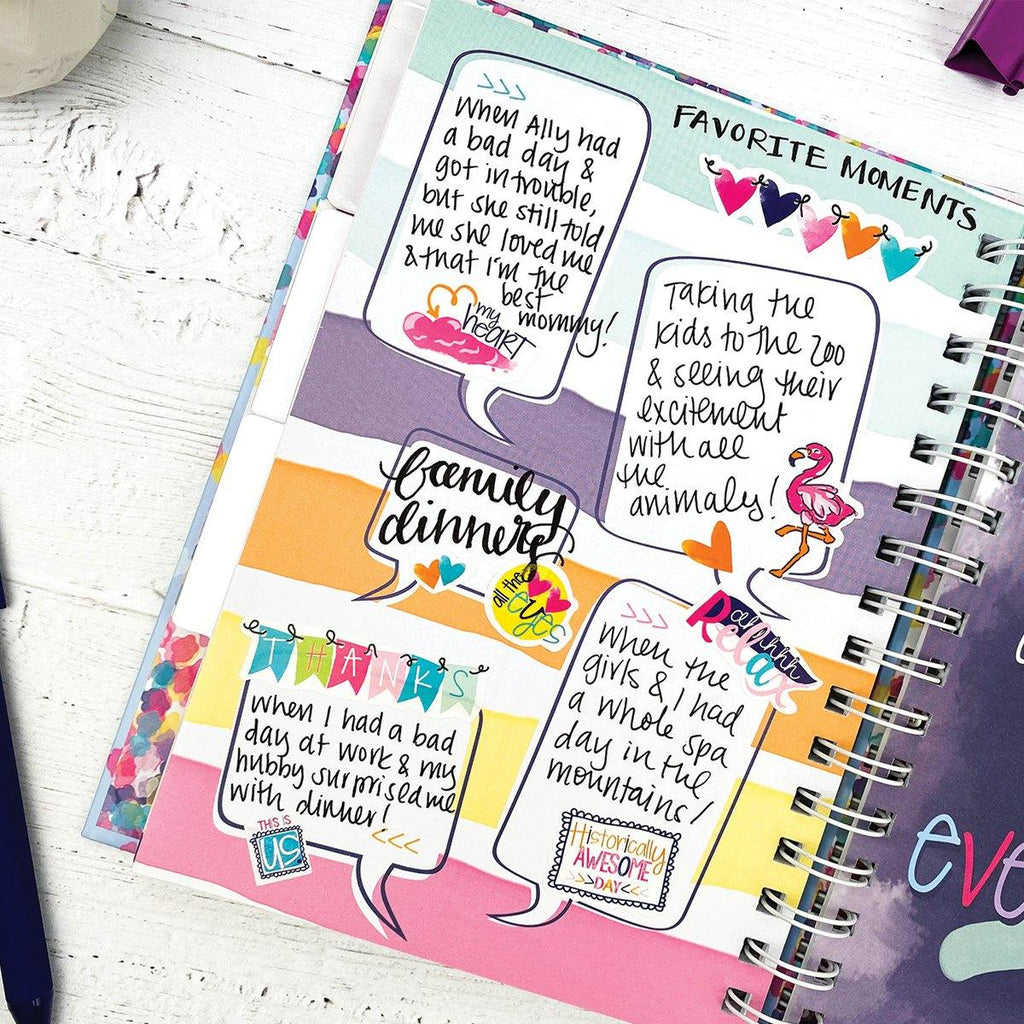 FAVORITE MOMENTS
When Ally had
a bad day &
got in trouble,
but she still told
me she loved me
& that I'm the
best
mommy!
my
heart
Taking the
kids to the zoo
& seeing their
excitement
with all
the
animals!
family
dinners
all the
eyes
ahhhh
Relax
THANKS
When I had a bad
day at work & my
hubby surprised me
with dinner!
THIS IS
US
When the
girls & I had
a whole spa
day in the
mountains!
Historically
AWESOME
DAY
eve